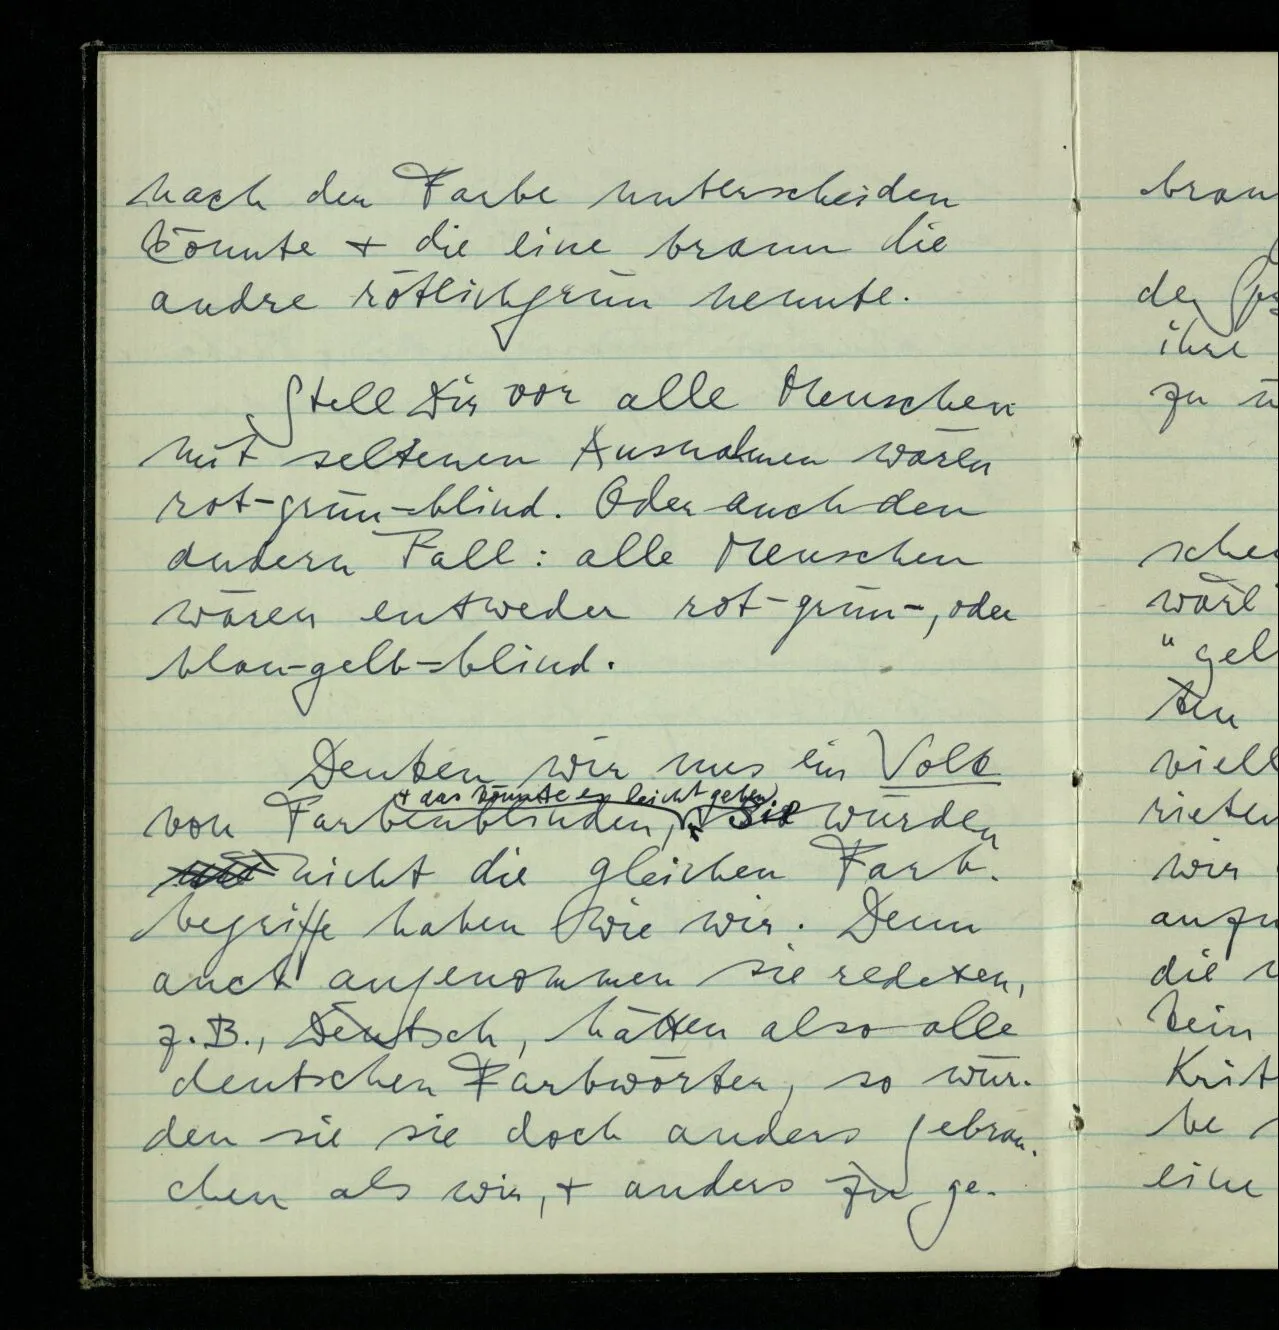 nach der Farbe unterscheiden
könnte + die eine braun die
andre rötlichgrün nennte.
Stell Dir vor alle Menschen
mit seltenen Ausnahmen wären
rot-grün-blind. Oder auch den
andern Fall: alle Menschen
wären entweder rot-grün-, oder
blau-gelb-blind.
Denken wir uns ein Volk
+ das könnte es leicht geben.
von Farbenblinden, Sie würden
nicht die gleichen Farb-
begriffe haben wie wir. Denn
auch angenommen sie redeten,
z.B., Deutsch, hätten also alle
deutschen Farbwörter, so wür-
den sie sie doch anders gebrau-
chen als wir, + anders zu ge-
brau
der
ihre
zu
sche
wäre
"gel
ten
viell
rieten
wir
anzu
die
kein
Krit
be
eine